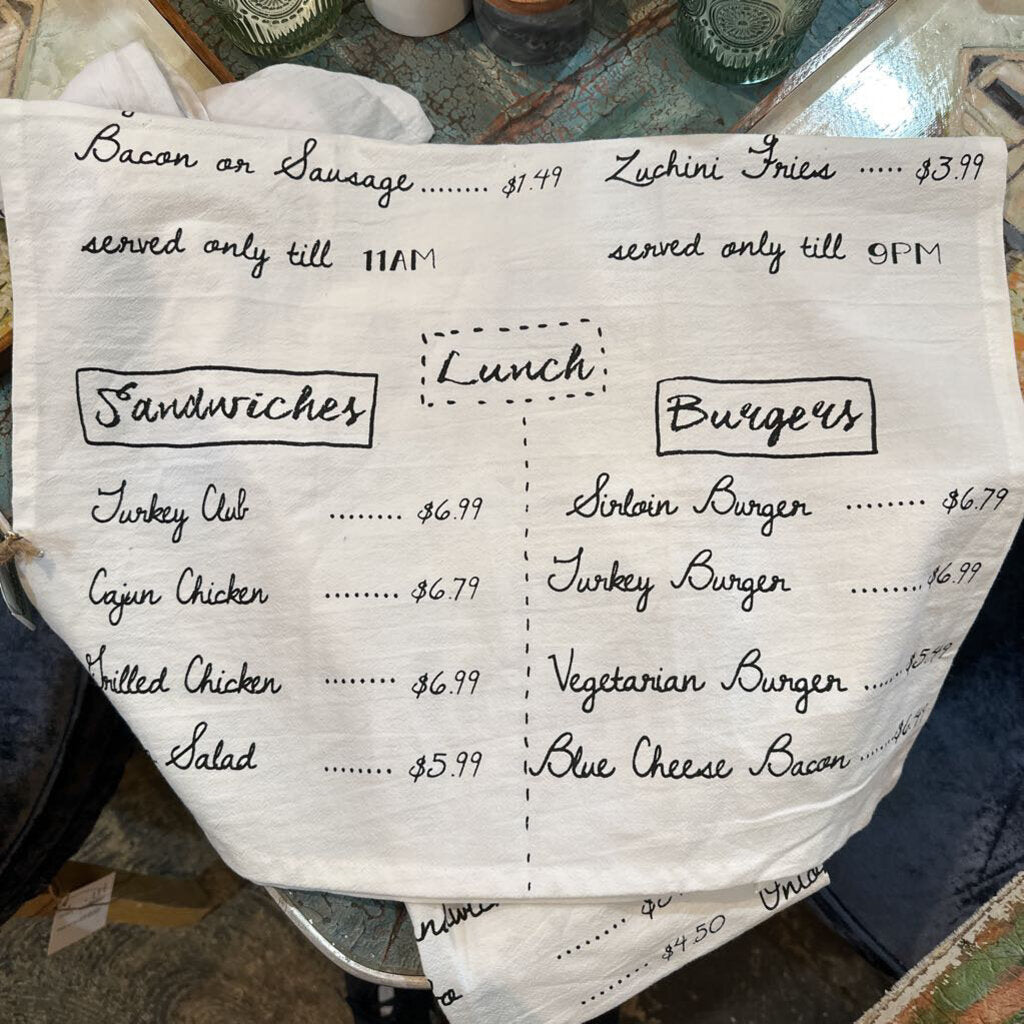 Bacon or Sausage ........ $1.49
served only till 11AM
Zuchini Fries ..... $3.99
served only till 9PM
Lunch
Sandwiches
Turkey Club ........ $6.99
Cajun Chicken ........ $6.79
Grilled Chicken ........ $6.99
Salad ........ $5.99
Burgers
Sirloin Burger ........ $6.79
Turkey Burger ........ $6.99
Vegetarian Burger ......
Blue Cheese Bacon ......
........ $4.50